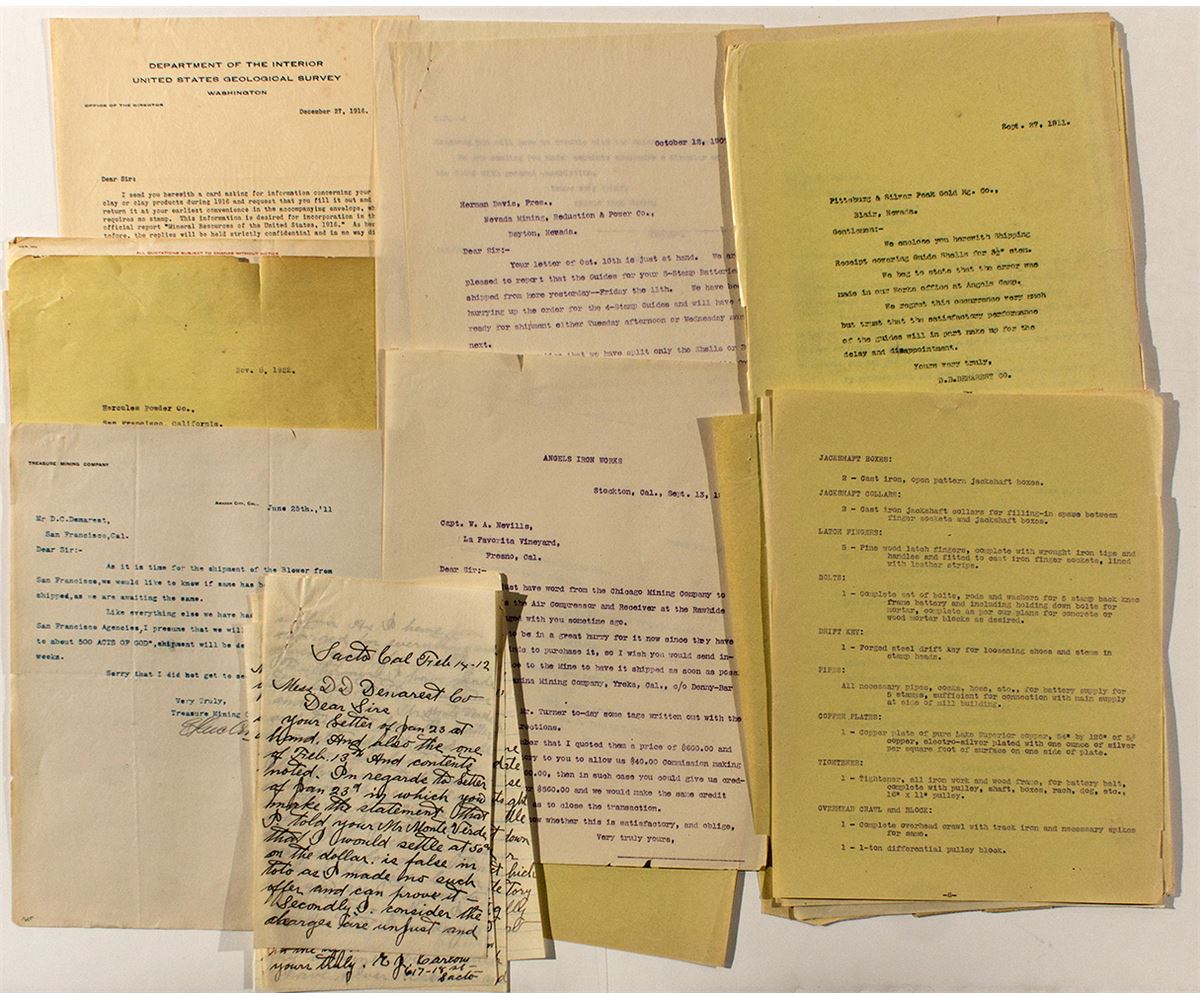 DEPARTMENT OF THE INTERIOR
UNITED STATES GEOLOGICAL SURVEY
WASHINGTON
OFFICE OF THE DIRECTOR
December 27, 1916.
Dear Sir:
I send you herewith a card asking for information concerning your
clay or clay products during 1916 and request that you fill it out and
return it at your earliest convenience in the accompanying envelope,
requires no stamp. This information is desired for incorporation in
official report "Mineral Resources of the United States, 1916." As
tofore, the replies will be held strictly confidential and in no way
ALL QUOTATIONS SUBJECT TO CHANGE WITHOUT NOTICE
Nov. 8, 1922.
Hercules Powder Co.,
San Francisco, California.
TREASURE MINING COMPANY
AMADOR CITY, CAL.,
June 25th.,'11
Mr D.C.Demarest,
San Francisco,Cal.
Dear Sir:-
As it is time for the shipment of the Blower from
San Francisco,we would like to know if same has
shipped,as we are awaiting the same.
Like everything else we have
San Francisco Agencies,I presume that we will
to about 500 ACTS OF GOD",shipment will be
weeks.
Sorry that I did not get to
Very Truly,
Treasure Mining
October 12, 190
Herman Davis, Pres.,
Nevada Mining, Reduction & Power Co.,
Dayton, Nevada.
Dear Sir:-
Your letter of Oct. 10th is just at hand. We
pleased to report that the Guides for your 5-Stamp
shipped from here yesterday--Friday the 11th. We have
hurrying up the order for the 4-Stamp Guides and will have
ready for shipment either Tuesday afternoon or Wednesday
next.
that we have split only the Shells or
ANGELS IRON WORKS
Stockton, Cal., Sept. 13,
Capt. W. A. Nevills,
La Favorita Vineyard,
Fresno, Cal.
Dear Sir:-
have word from the Chicago Mining Company to
the Air Compressor and Receiver at the Rawhide
with you sometime ago.
be in a great hurry for it now since they have
to purchase it, so I wish you would send
to the Mine to have it shipped as soon as
Mining Company, Yreka, Cal., c/o Denny-Bar
Mr. Turner to-day some tags written out with the
that I quoted them a price of $600.00 and
to you to allow us $40.00 Commission making
then in such case you could give us
$560.00 and we would make the same credit
as to close the transaction.
whether this is satisfactory, and oblige,
Very truly yours,
Sacto Cal Feb 14-12
Mess D D Demarest Co
Dear Sirs
your Letter of Jan 23 at
hand. And also the one
of Feb. 13th And contents
noted. In regards to Letter
of Jan 23d in which you
make the statement that
I told your Mr Monte Verde
that I would settle at 50¢
on the dollar. is false in
toto as I made no such
offer and can prove it -
Secondly I. consider the
charges are unjust and
yours truly.
617-18 st
Sacto
Sept. 27, 1911.
Pittsburg & Silver Peak Gold Mg. Co.,
Blair, Nevada.
Gentlemen:-
We enclose you herewith Shipping
Receipt covering Guide Shells for 3½" stem.
We beg to state that the error was
made in our Works office at Angels Camp.
We regret this occurrence very much
but trust that the satisfactory performance
of the guides will in part make up for the
delay and disappointment.
Yours very truly,
D.D.DEMAREST CO.
JACKSHAFT BOXES:
2 - Cast iron, open pattern jackshaft boxes.
JACKSHAFT COLLARS:
2 - Cast iron jackshaft collars for filling-in space between
finger sockets and jackshaft boxes.
LATCH FINGERS:
5 - Pine wood latch fingers, complete with wrought iron tips and
handles and fitted to cast iron finger sockets, lined
with leather strips.
BOLTS:
1 - Complete set of bolts, rods and washers for 5 stamp back knee
frame battery and including holding down bolts for
mortar, complete as per our plans for concrete or
wood mortar blocks as desired.
DRIFT KEY:
1 - Forged steel drift key for loosening shoes and stems in
stamp heads.
PIPES:
All necessary pipes, cocks, hose, etc., for battery supply for
5 stamps, sufficient for connection with main supply
at side of mill building.
COPPER PLATES:
1 - Copper plate of pure Lake Superior copper, 54" by 120" of
copper, electro-silver plated with one ounce of silver
per square foot of surface on one side of plate.
TIGHTENER:
1 - Tightener, all iron work and wood frame, for battery belt,
complete with pulley, shaft, boxes, rach, dog, etc.,
16" X 11" pulley.
OVERHEAD CRAWL and BLOCK:
1 - Complete overhead crawl with track iron and necessary spikes
for same.
1 - 1-ton differential pulley block.